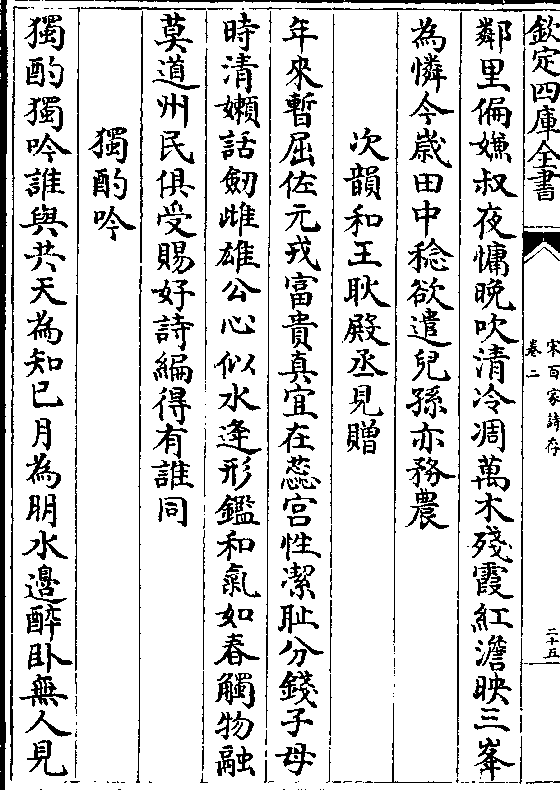 欽定四庫全書
宋百家詩存
卷二
二十五
鄰里偏嫌叔夜慵晚吹清冷凋萬木殘霞紅澹映三峯
為憐今歲田中稔欲遣兒孫亦務農
次韻和王耿殿丞見贈
年來暫屈佐元戎富貴真宜在蕊宮性潔耻分錢子母
時清嬾話劒雌雄公心似水逢形鑑和氣如春觸物融
莫道州民俱受賜好詩編得有誰同
獨酌吟
獨酌獨吟誰與共天為知已月為朋水邊醉卧無人見